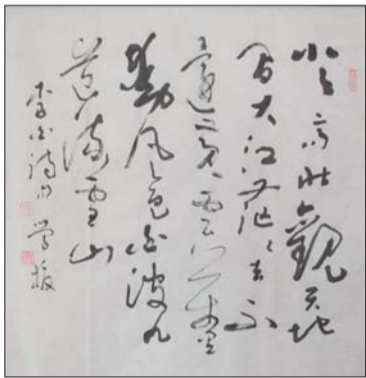 登高壯觀天地
間大江茫々去不
還黃雲万里
動風色白波九
道流雪山
李白詩句